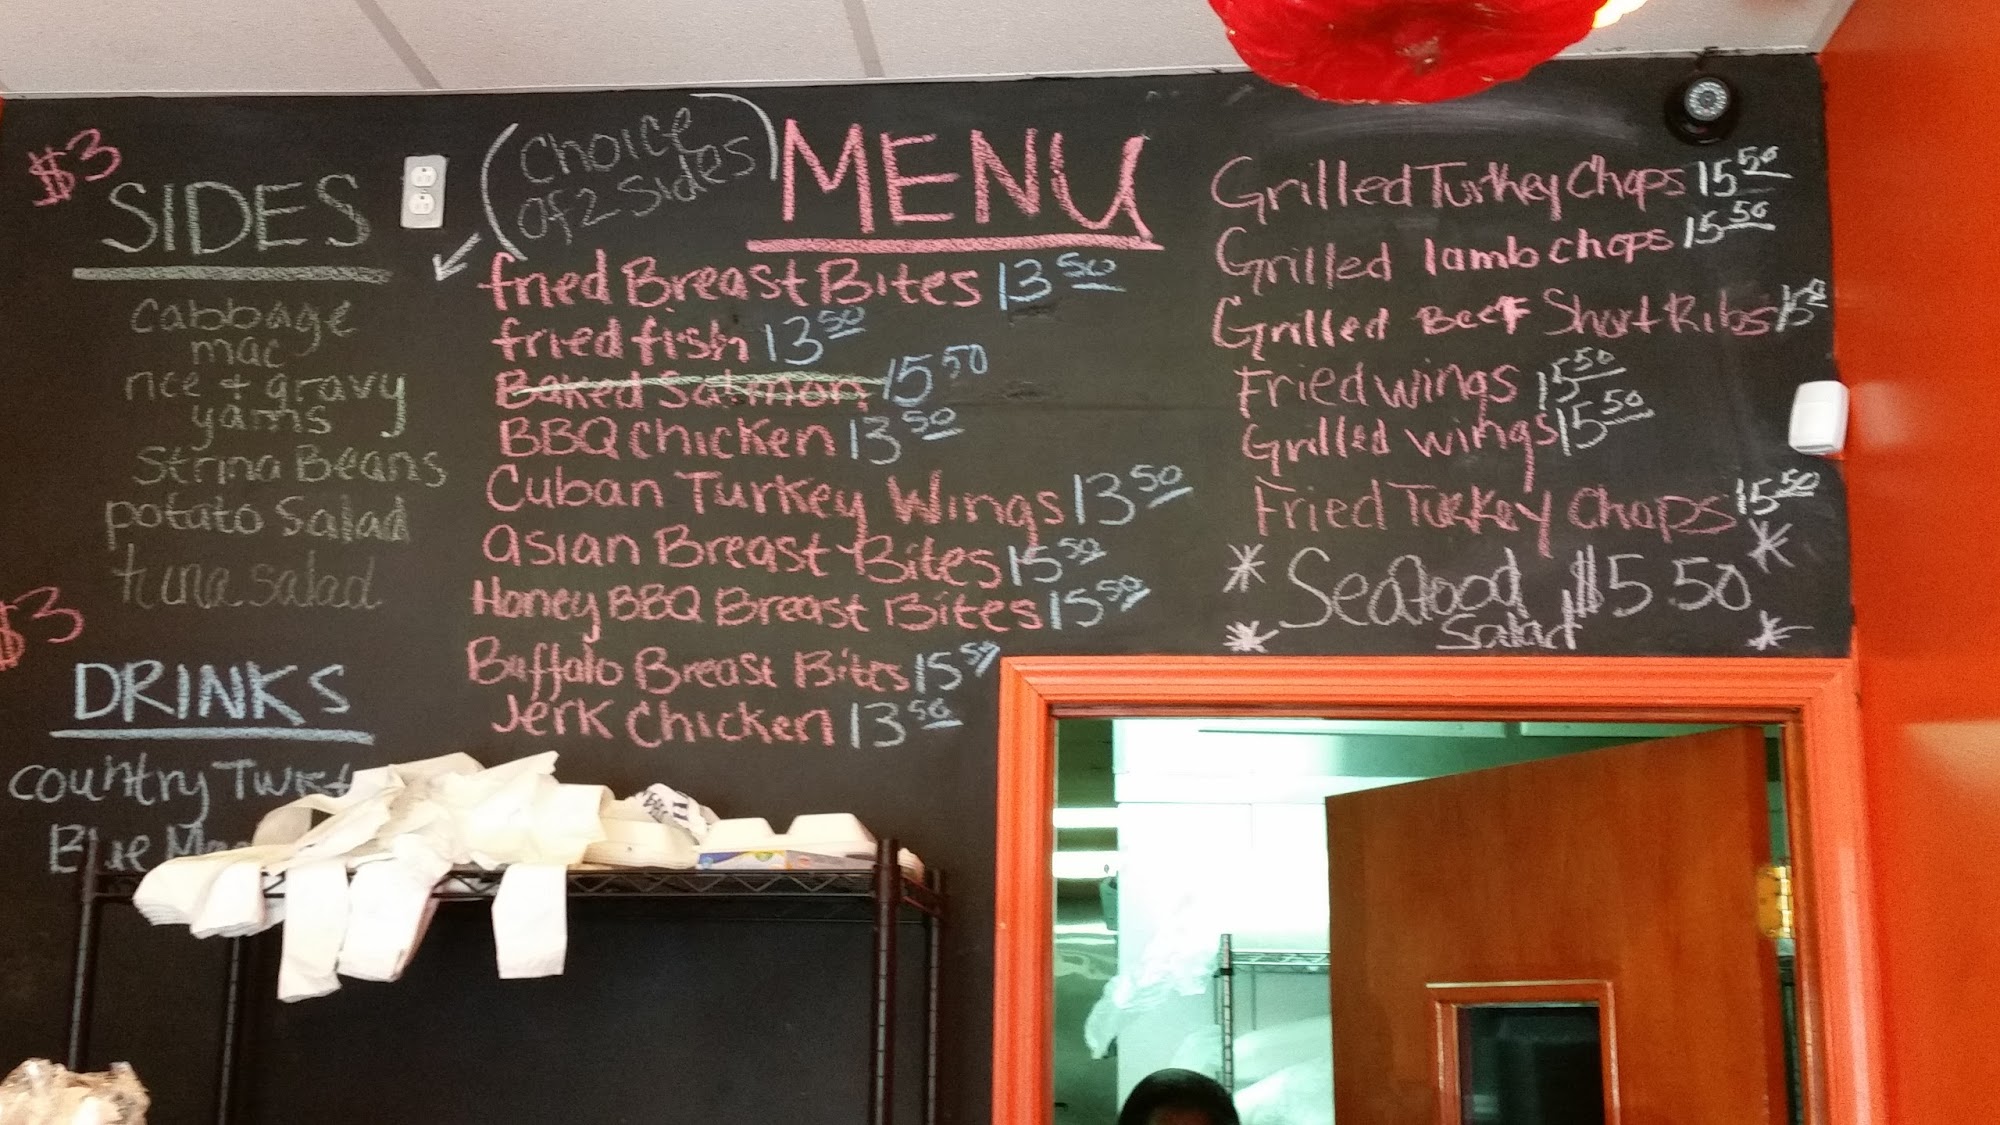 $3
SIDES
cabbage
mac
rice + gravy
yams
String Beans
potato Salad
tuna salad
$3
DRINKS
country Twist
Blue
(Choice
of 2 Sides)
MENU
fried Breast Bites 13 50
fried fish 13 50
Baked Salmon 15 50
BBQ chicken 13 50
Cuban Turkey Wings 13 50
Asian Breast Bites 15 50
Honey BBQ Breast Bites 15 50
Buffalo Breast Bites 15 50
Jerk Chicken 13 50
Grilled Turkey Chops 15 50
Grilled lamb chops 15 50
Grilled Beef Short Ribs 15 50
Fried wings 15 50
Grilled wings 15 50
Fried Turkey Chops 15 50
* Seafood $5.50 *
* Salad *